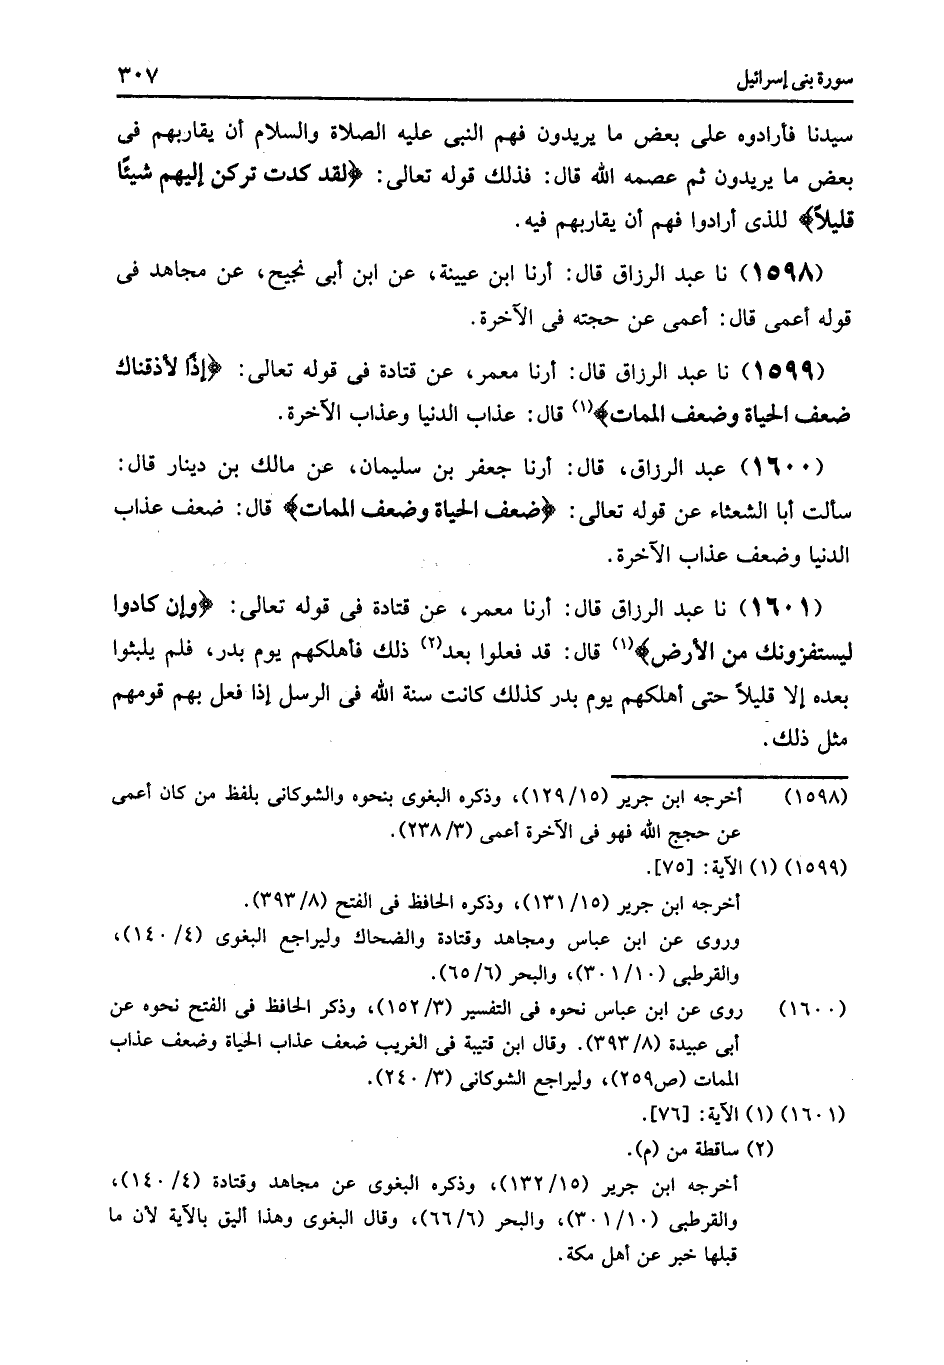 سورة بنى إسرائيل ٣٠٧
سيدنا فأرادوه على بعض ما يريدون فهم النبى عليه الصلاة والسلام أن يقاربهم فى
بعض ما يريدون ثم عصمه الله قال: فذلك قوله تعالى: ﴿لقد كدت تركن إليهم شيئًا
قليلاً﴾ للذى أرادوا فهم أن يقاربهم فيه.
(١٥٩٨) نا عبد الرزاق قال: أرنا ابن عيينة، عن ابن أبى نجيح، عن مجاهد فى
قوله أعمى قال: أعمى عن حجته فى الآخرة.
(١٥٩٩) نا عبد الرزاق قال: أرنا معمر، عن قتادة فى قوله تعالى: ﴿إذًا لأذقناك
ضعف الحياة وضعف الممات﴾(١) قال: عذاب الدنيا وعذاب الآخرة.
(١٦٠٠) عبد الرزاق، قال: أرنا جعفر بن سليمان، عن مالك بن دينار قال:
سألت أبا الشعثاء عن قوله تعالى: ﴿ضعف الحياة وضعف الممات﴾ قال: ضعف عذاب
الدنيا وضعف عذاب الآخرة.
(١٦٠١) نا عبد الرزاق قال: أرنا معمر، عن قتادة فى قوله تعالى: ﴿وإن كادوا
ليستفزونك من الأرض﴾(١) قال: قد فعلوا بعد(٢) ذلك فأهلكهم يوم بدر، فلم يلبثوا
بعده إلا قليلاً حتى أهلكهم يوم بدر كذلك كانت سنة الله فى الرسل إذا فعل بهم قومهم
مثل ذلك.
(١٥٩٨) أخرجه ابن جرير (١٢٩/١٥)، وذكره البغوى بنحوه والشوكانى بلفظ من كان أعمى
عن حجج الله فهو فى الآخرة أعمى (٢٣٨/٣).
(١٥٩٩) (١) الآية: [٧٥].
أخرجه ابن جرير (١٣١/١٥)، وذكره الحافظ فى الفتح (٣٩٣/٨).
وروى عن ابن عباس ومجاهد وقتادة والضحاك وليراجع البغوى (١٤٠/٤)،
والقرطبى (٣٠١/١٠)، والبحر (٦٥/٦).
(١٦٠٠) روى عن ابن عباس نحوه فى التفسير (١٥٢/٣)، وذكر الحافظ فى الفتح نحوه عن
أبى عبيدة (٣٩٣/٨). وقال ابن قتيبة فى الغريب ضعف عذاب الحياة وضعف عذاب
الممات (ص٢٥٩)، وليراجع الشوكانى (٢٤٠/٣).
(١٦٠١) (١) الآية: [٧٦].
(٢) ساقطة من (م).
أخرجه ابن جرير (١٣٢/١٥)، وذكره البغوى عن مجاهد وقتادة (١٤٠/٤)،
والقرطبى (٣٠١/١٠)، والبحر (٦٦/٦)، وقال البغوى وهذا أليق بالآية لأن ما
قبلها خبر عن أهل مكة.